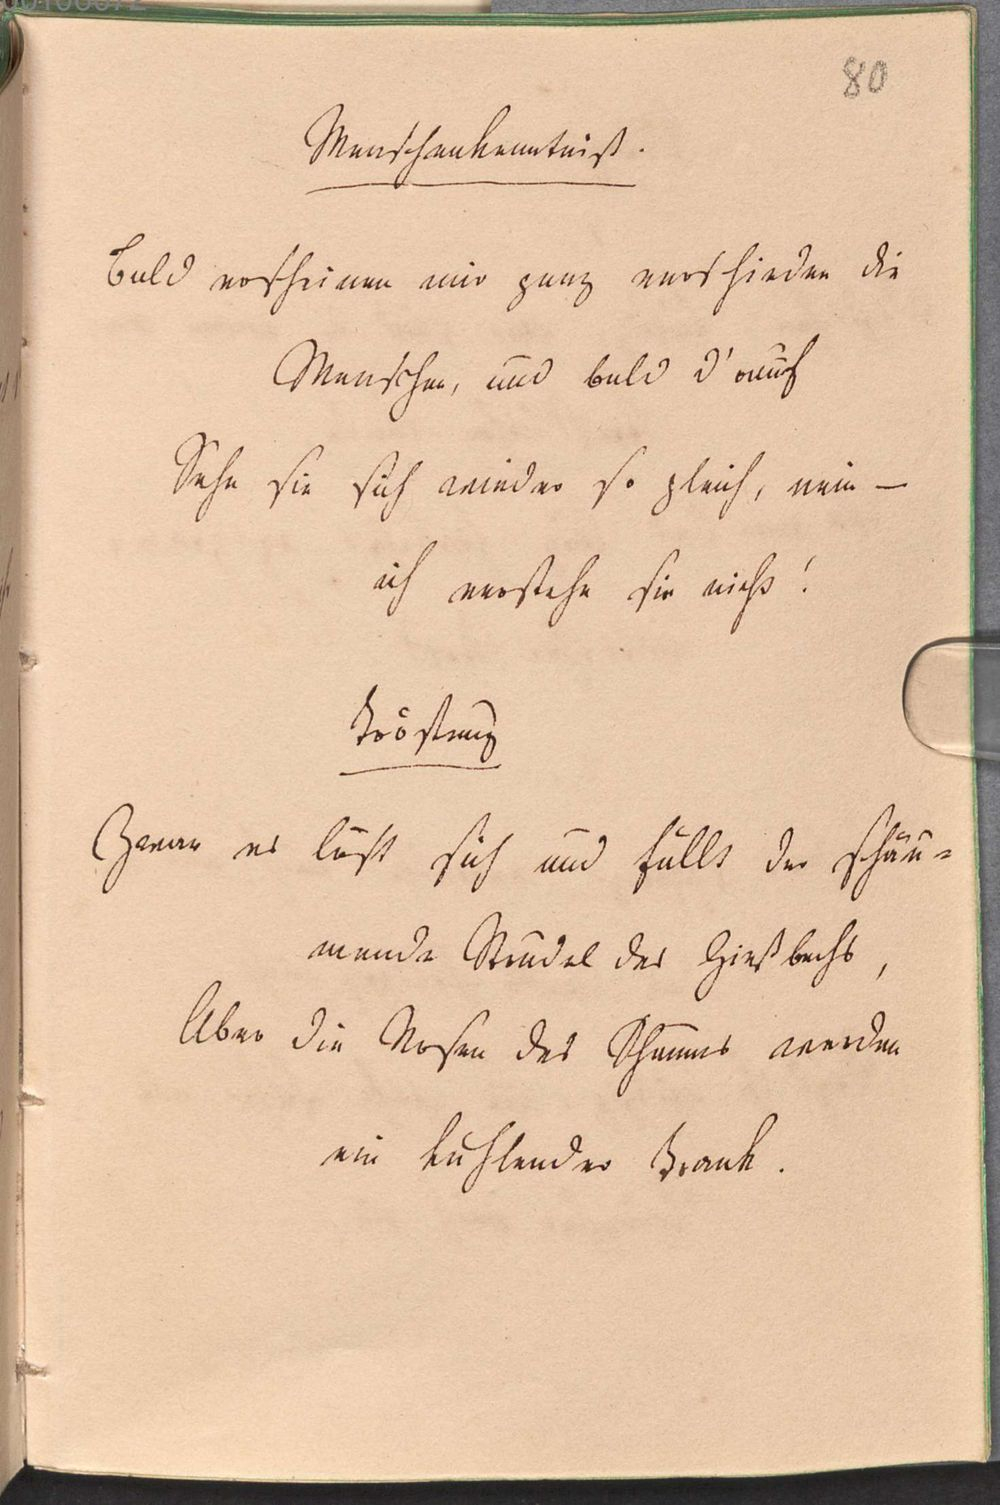 80
Menschenkenntniß.
Bald erscheinen mir ganz verschieden die
Menschen, und bald d'rauf
Sehn sie sich wieder so gleich, nein —
ich verstehe sie nicht!
Tröstung
Zwar es löst sich und fällt der schäu=
mende Strudel des Gießbachs,
Aber die Rosen des Schaums werden
ein kühlender Trank.